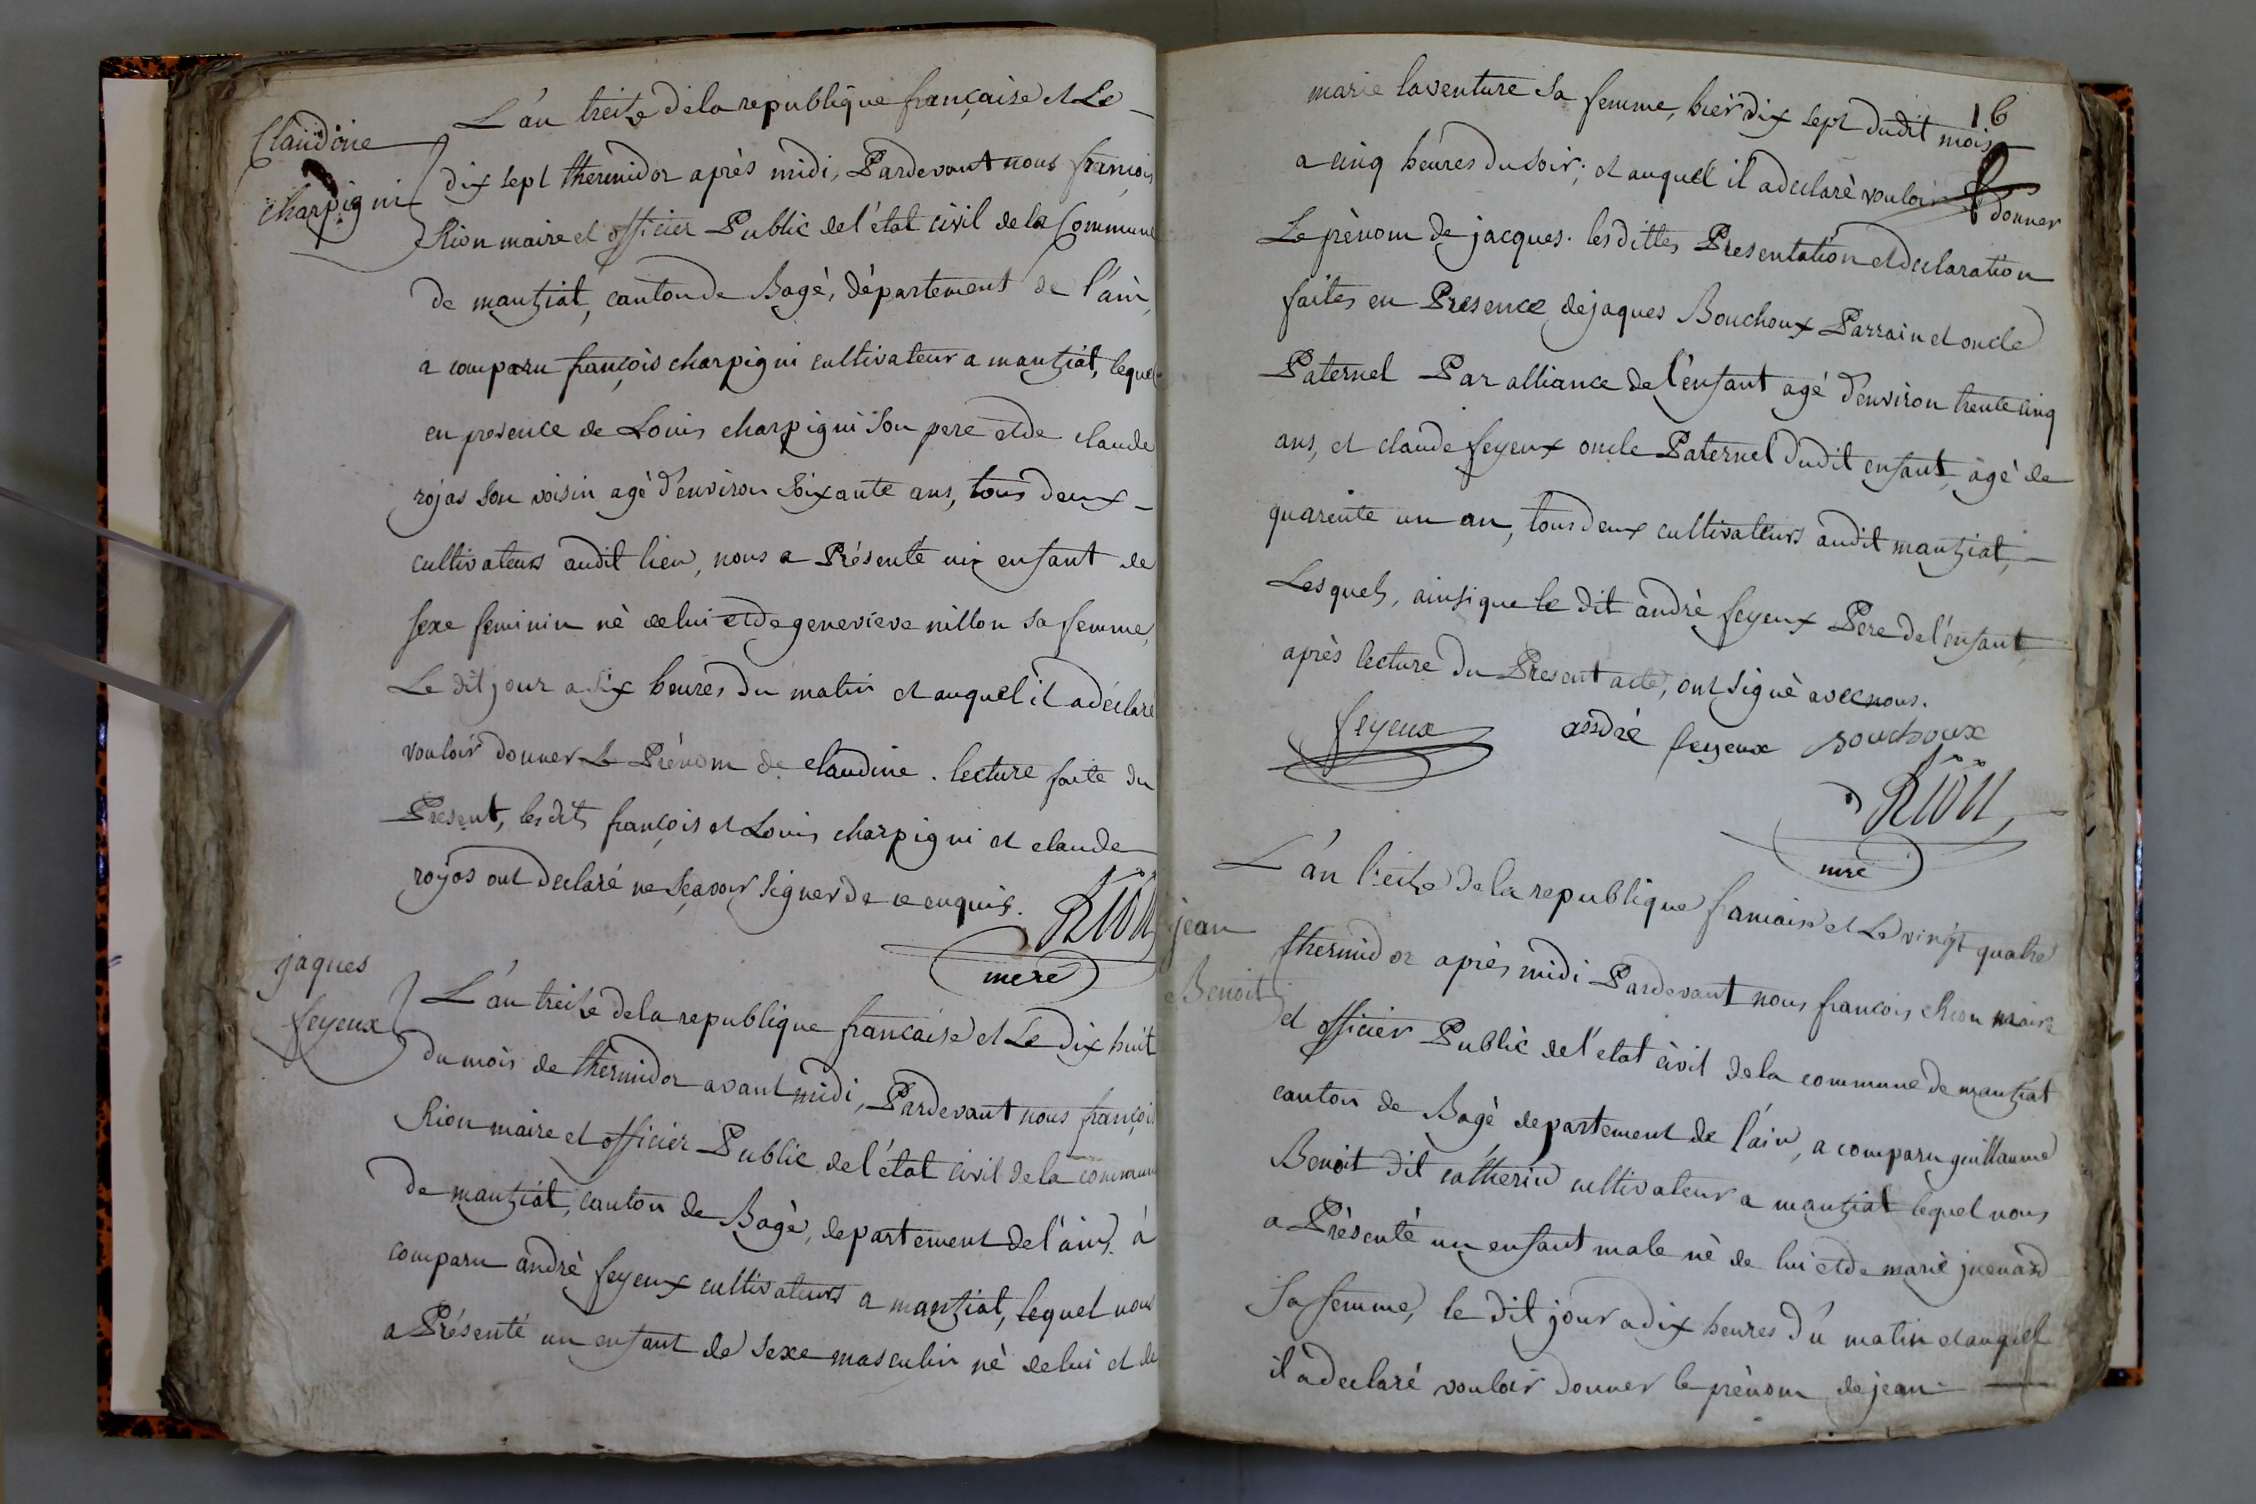 Claudine
charpigni
L'an treize de la republique française et Le
dix sept thermidor après midi, Pardevant nous françois
Rion maire et officier Public de l'état civil de la Commune
de mantziat, canton de Bagè, département de l'ain,
a comparu françois charpigni cultivateur a mantziat, lequel
en presence de Louis charpigni son pere et de claude
rojas son voisin agè d'environ soixante ans, tous deux
cultivateurs audit lieu, nous a Présenté un enfant de
sexe feminin nè de lui et de genevieve nillon sa femme,
Le dit jour a six heures du matin et auquel il a déclaré
vouloir donner Le Prénom de claudine. lecture faite du
Present, les dits françois et Louis charpigni et claude
rojas ont declaré ne sçavoir signer de ce enquis.
Rion
mere
jaques
feyeux
L'an treize de la republique francaise et Le dix huit
du mois de thermidor avant midi, Pardevant nous françois
Rion maire et officier Public de l'état civil de la commune
de mantziat, canton de Bagè, departement de l'ain. à
comparu andrè feyeux cultivateurs a mantziat, lequel nous
a Présenté un enfant de sexe masculin nè de lui et de
16
marie laventure sa femme, hier dix sept dudit mois
a cinq heures du soir; et auquel il a declarè vouloir donner
Le prènom de jacques. les dittes Presentation et declaration
faites en Presence de jaques Bouchoux Parrain et oncle
Paternel Par alliance de l'enfant agé d'environ trente cinq
ans, et claude feyeux oncle Paternel dudit enfant, âgè de
quarente un an, tous deux cultivateurs audit mantziat,
Lesquels, ainsi que le dit andrè feyeux Pere de l'enfant
après lecture du Present acte, ont signè avec nous.
feyeux andré feyeux bouchoux
Rion
mre
jean
Benoit
L'an treize de la republique francaise et Le vingt quatre
thermidor après midi Pardevant nous francois Rion maire
et officier Public de l'etat civil de la commune de mantziat
canton de Bagè departement de l'ain, a comparu guillaume
Benoit dit catherin cultivateur a mantziat lequel nous
a Prèsenté un enfant male nè de lui et de marie juenard
sa femme, le dit jour a dix heures du matin et auquel
il a declaré vouloir donner le prènom de jean